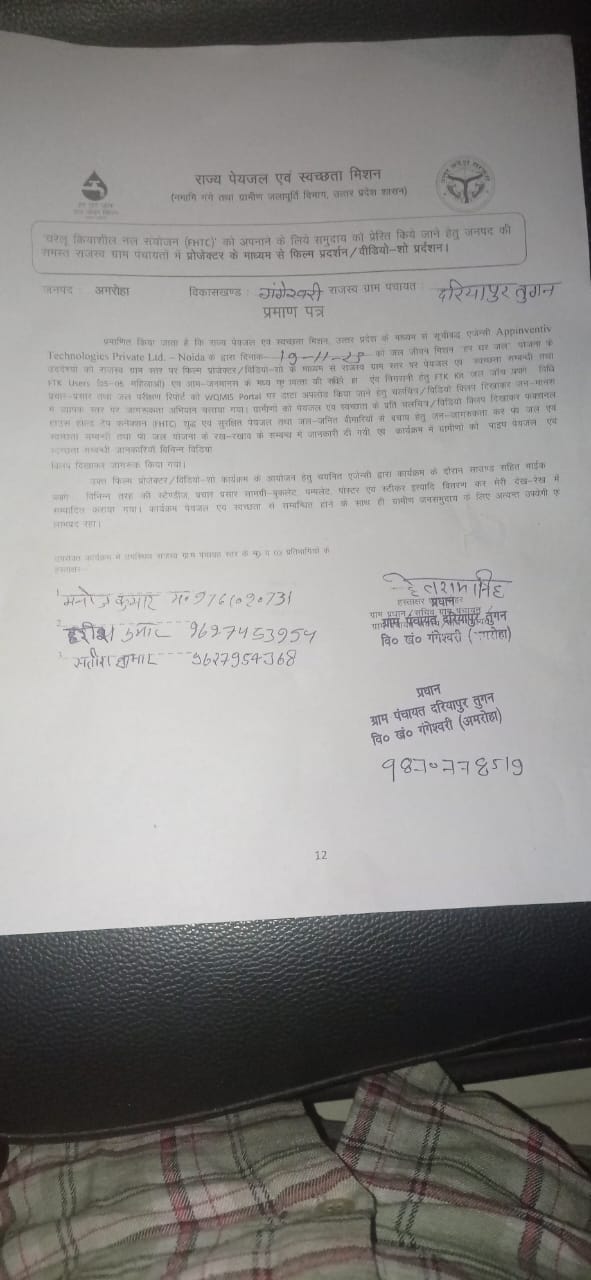 राज्य पेयजल एवं स्वच्छता मिशन
(नमामि गंगे तथा ग्रामीण जलापूर्ति विभाग, उत्तर प्रदेश शासन)
'घरेलू क्रियाशील नल संयोजन (FHTC)' को अपनाने के लिये समुदाय को प्रेरित किये जाने हेतु जनपद की
समस्त राजस्व ग्राम पंचायतों में प्रोजेक्टर के माध्यम से फिल्म प्रदर्शन/वीडियो-शो प्रर्दशन।
जनपद : अमरोहा विकासखण्ड : गंगेश्वरी राजस्व ग्राम पंचायत : दरियापुर तुगन
प्रमाण पत्र
प्रमाणित किया जाता है कि राज्य पेयजल एवं स्वच्छता मिशन, उत्तर प्रदेश के माध्यम से सूचीबद्ध एजेन्सी Appinventiv
Technologies Private Ltd. - Noida के द्वारा दिनांक 19-11-25 को जल जीवन मिशन "हर घर जल" योजना के
उद्देश्यों को राजस्व ग्राम स्तर पर फिल्म प्रोजेक्टर/विडियो-शो के माध्यम से राजस्व ग्राम स्तर पर पेयजल एवं स्वच्छता सम्बन्धी तथा
FTK Users (05-06 महिलाओं) एवं आम-जनमानस के मध्य एवं निगरानी हेतु FTK Kit जल जाँच विधि
प्रचार-प्रसार तथा जल परीक्षण रिपोर्ट को WQMIS Portal पर डाटा अपलोड किया जाने हेतु चलचित्र/विडियो क्लिप दिखाकर जन-मानस
में व्यापक स्तर पर जागरूकता अभियान चलाया गया। ग्रामीणों को पेयजल एवं स्वच्छता के प्रति चलचित्र/विडियो क्लिप दिखाकर फंक्शनल
हाउस होल्ड टेप कनेक्शन (FHTC) शुद्ध एवं सुरक्षित पेयजल तथा जल-जनित बीमारियों से बचाव हेतु जन-जागरूकता कर एवं जल एवं
स्वच्छता सम्बन्धी तथा जल योजना के रख-रखाव के सम्बन्ध में जानकारी दी गयी एवं कार्यक्रम में ग्रामीणों को पाइप पेयजल एवं
स्वच्छता सम्बन्धी जानकारियों विभिन्न विडियो
क्लिप दिखाकर जागरूक किया गया।
उक्त फिल्म प्रोजेक्टर/विडियो-शो कार्यक्रम के आयोजन हेतु चयनित एजेन्सी द्वारा कार्यक्रम के दौरान साउण्ड सहित माईक
विभिन्न तरह की स्टेण्डीज, प्रचार प्रसार सामग्री-बुकलेट, पम्पलेट, पोस्टर एवं स्टीकर इत्यादि वितरण कर मेरी देख-रेख में
सम्पादित कराया गया। कार्यक्रम पेयजल एवं स्वच्छता से सम्बन्धित होने के साथ ही ग्रामीण जनसमुदाय के लिए अत्यन्त उपयोगी एवं
लाभप्रद रहा।
उपरोक्त कार्यक्रम में उपस्थित राजस्व ग्राम पंचायत स्तर के 03 प्रतिभागियों के
हस्ताक्षर-
1. मनोज कुमार
2. हरीश कुमार 9627453954
3. सतीश कुमार 9627954368
हेतराम सिंह
प्रधान
ग्राम पंचायत दरियापुर तुगन
वि० खं० गंगेश्वरी (अमरोहा)
प्रधान
ग्राम पंचायत दरियापुर तुगन
वि० खं० गंगेश्वरी (अमरोहा)
12